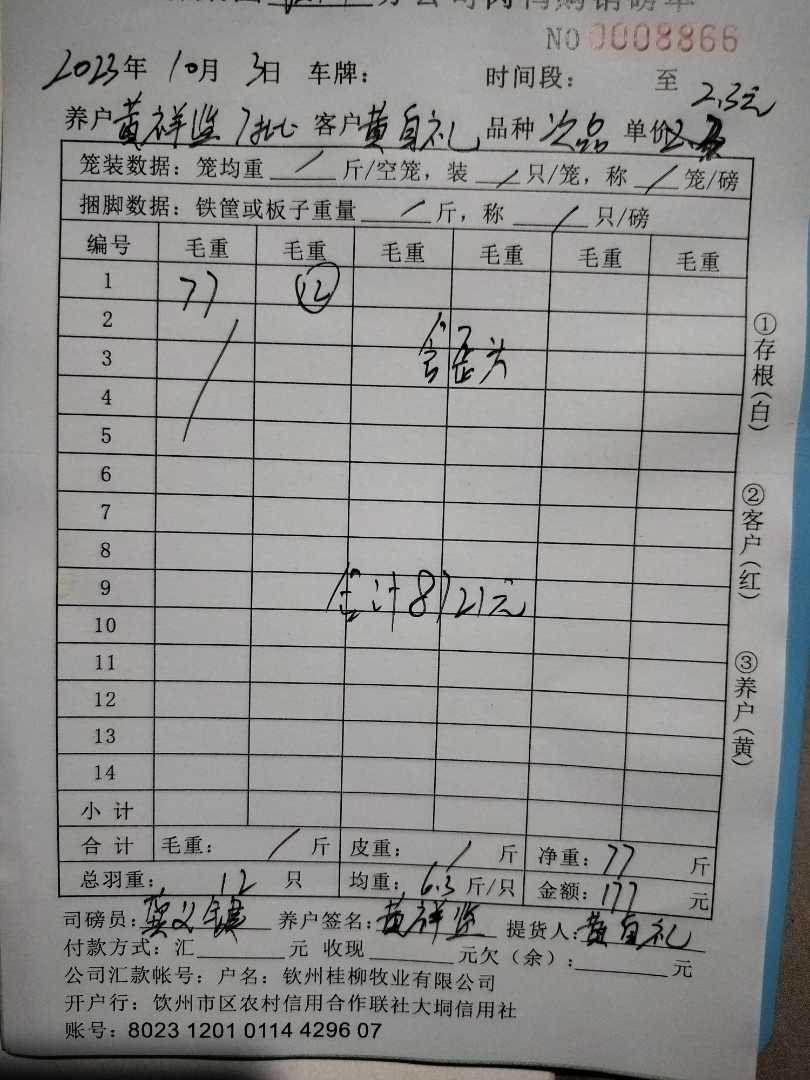 分公司肉鸭购销磅单
NO 0008866
2023年 10月 3日 车牌： 时间段： 至
2.3元
养户黄祥监 7批 客户黄自礼 品种 次品 单价
笼装数据：笼均重 / 斤/空笼，装 / 只/笼，称 / 笼/磅
捆脚数据：铁筐或板子重量 / 斤，称 / 只/磅
编号 毛重 毛重 毛重 毛重 毛重 毛重
1 77 12
2
3 含歪头
4
5
6
7
8
9 合计8121元
10
11
12
13
14
小 计
合 计 毛重： / 斤 皮重： / 斤 净重：77 斤
总羽重： 12 只 均重：6.3 斤/只 金额：177 元
司磅员： 养户签名：黄祥监 提货人：黄自礼
付款方式：汇 元 收现 元欠（余）： 元
公司汇款帐号：户名：钦州桂柳牧业有限公司
开户行：钦州市区农村信用合作联社大垌信用社
账号：8023 1201 0114 4296 07
①存根（白）
②客户（红）
③养户（黄）